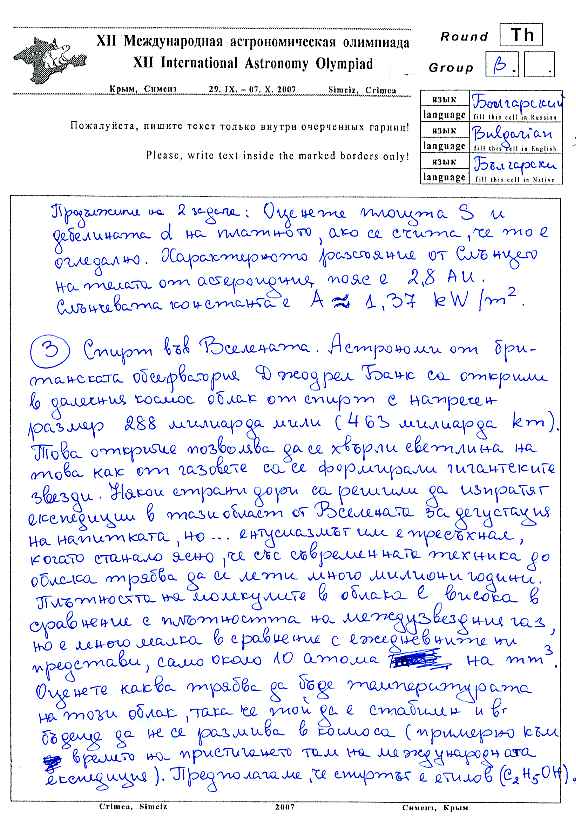 XII Международная астрономическая олимпиада
XII International Astronomy Olympiad
Round Th
Group B.
Крым, Симеиз 29. IX. – 07. X. 2007 Simeiz, Crimea
язык Болгарский
language fill this cell in Russian
Пожалуйста, пишите текст только внутри очерченных гарниц!
язык Bulgarian
language fill this cell in English
Please, write text inside the marked borders only!
язык Български
language fill this cell in Native
Продължение на 2 задача: Оценете площта S и
дебелината d на платното, ако се счита, че то е
огледално. Характерното разстояние от Слънцето
на телата от астероидния пояс е 2,8 AU.
Слънчевата константа е A ≈ 1,37 kW/m².
3 Спирт във Вселената. Астрономи от бри-
танската обсерватория Джодрел Банк са открили
в далечния космос облак от спирт с напречен
размер 288 милиарда мили (463 милиарда km).
Това откритие позволява да се хвърли светлина на
това как от газовете са се формирали гигантските
звезди. Някои страни дори са решили да изпратят
експедиции в тази област от Вселената за дегустация
на напитката, но ... ентусиазмът им е пресъхнал,
когато станало ясно, че със съвременната техника до
облака трябва да се лети много милиони години.
Плътността на молекулите в облака е висока в
сравнение с плътността на междузвездния газ,
но е много малка в сравнение с ежедневните ни
представи, само около 10 атома на mm³.
Оценете каква трябва да бъде температурата
на този облак, така че той да е стабилен и в
бъдеще да не се размива в космоса (примерно към
времето на пристигането там на международната
експедиция). Предполагаме, че спиртът е етилов (C₂H₅OH).
Crimea, Simeiz 2007 Симеиз, Крым